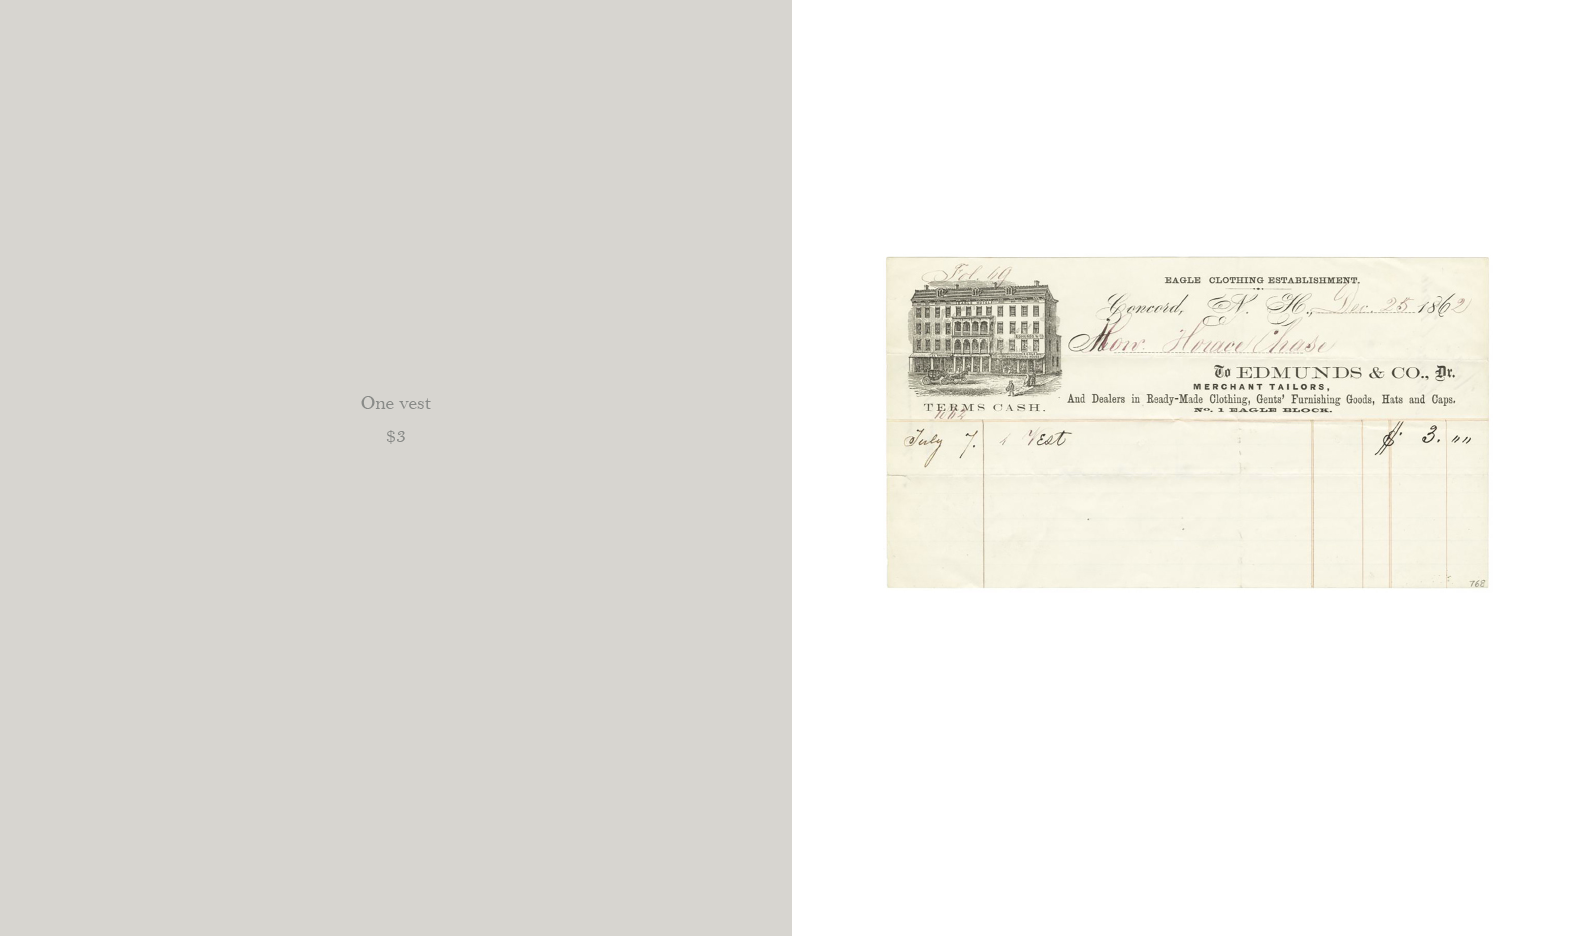 One vest
$3
Fol. 69
EAGLE CLOTHING ESTABLISHMENT.
Concord, N. H., Dec. 25 1862
Hon. Horace Chase
To EDMUNDS & CO., Dr.
MERCHANT TAILORS,
And Dealers in Ready-Made Clothing, Gents' Furnishing Goods, Hats and Caps.
No. 1 EAGLE BLOCK.
TERMS CASH.
1862
July 7. 1 Vest $ 3. " "
768